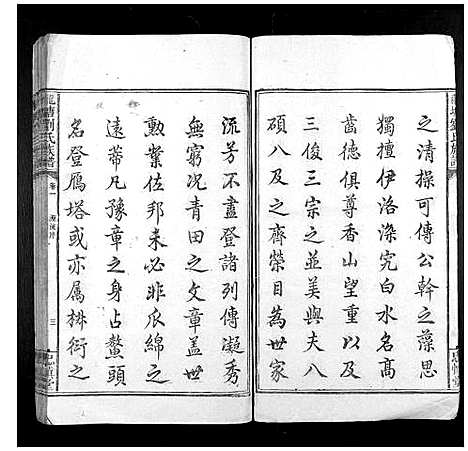 之清操可傳公幹之藻思
獨擅伊洛深究白水名高
齒德俱尊香山望重以及
三俊三宗之並美與夫八
碩八及之齊榮目為世家
流芳不盡登諸列傳凝秀
無窮況青田之文章蓋世
勲業佐邦未必非瓜綿之
遠蒂凡豫章之身占鰲頭
名登雁塔或亦属椒衍之
龍塘劉氏族譜
卷一
三